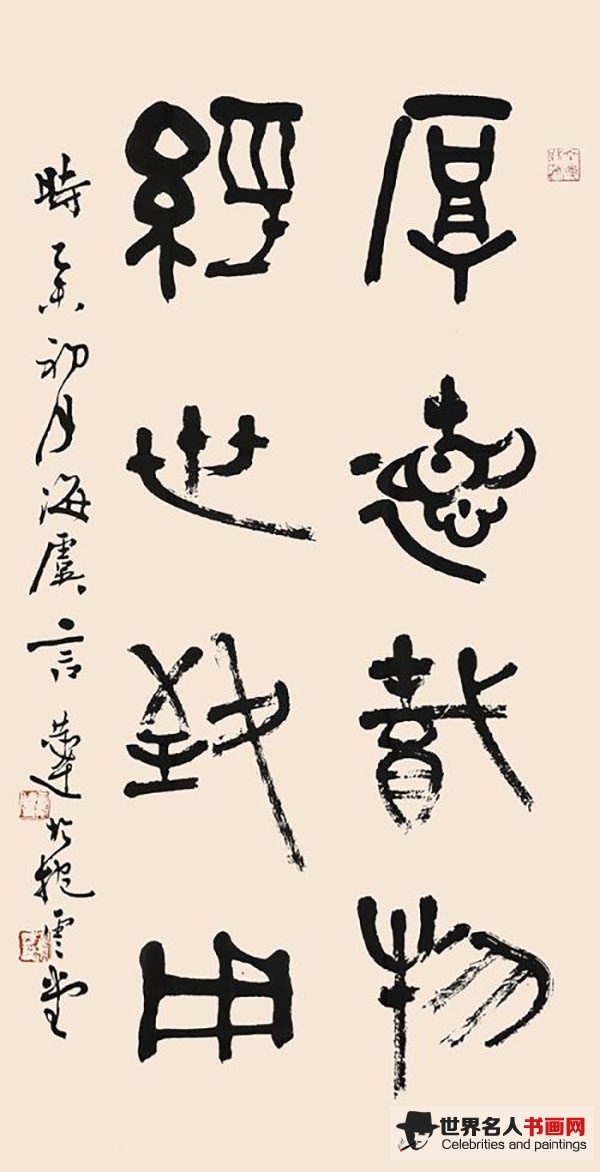 厚德載物
經世致用
時乙未初月海虞言恭達於抱雲堂
世界名人书画网
Celebrities and paintings